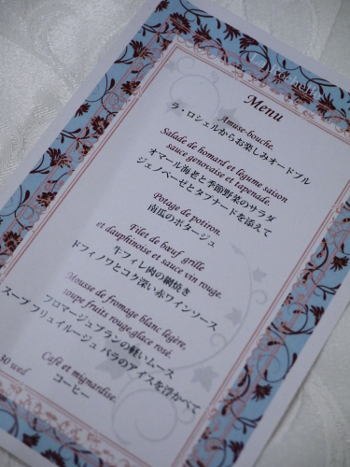 Menu
Amuse-bouche.
ラ・ロシェルからお楽しみオードブル
Salade de homard et legume saison
sauce genovaise et tapenade.
オマール海老と季節野菜のサラダ
ジェノベーゼとタプナードを添えて
Potage de potiron.
南瓜のポタージュ
Filet de bœuf grille
et dauphinoise et sauce vin rouge.
牛フィレ肉の網焼き
ドフィノワとコク深い赤ワインソース
Mousse de fromage blanc légère,
soupe fruits rouge,glace rosé.
フロマージュブランの軽いムース
スープフリュイルージュ バラのアイスを浮かべて
Café et mignardise.
コーヒー